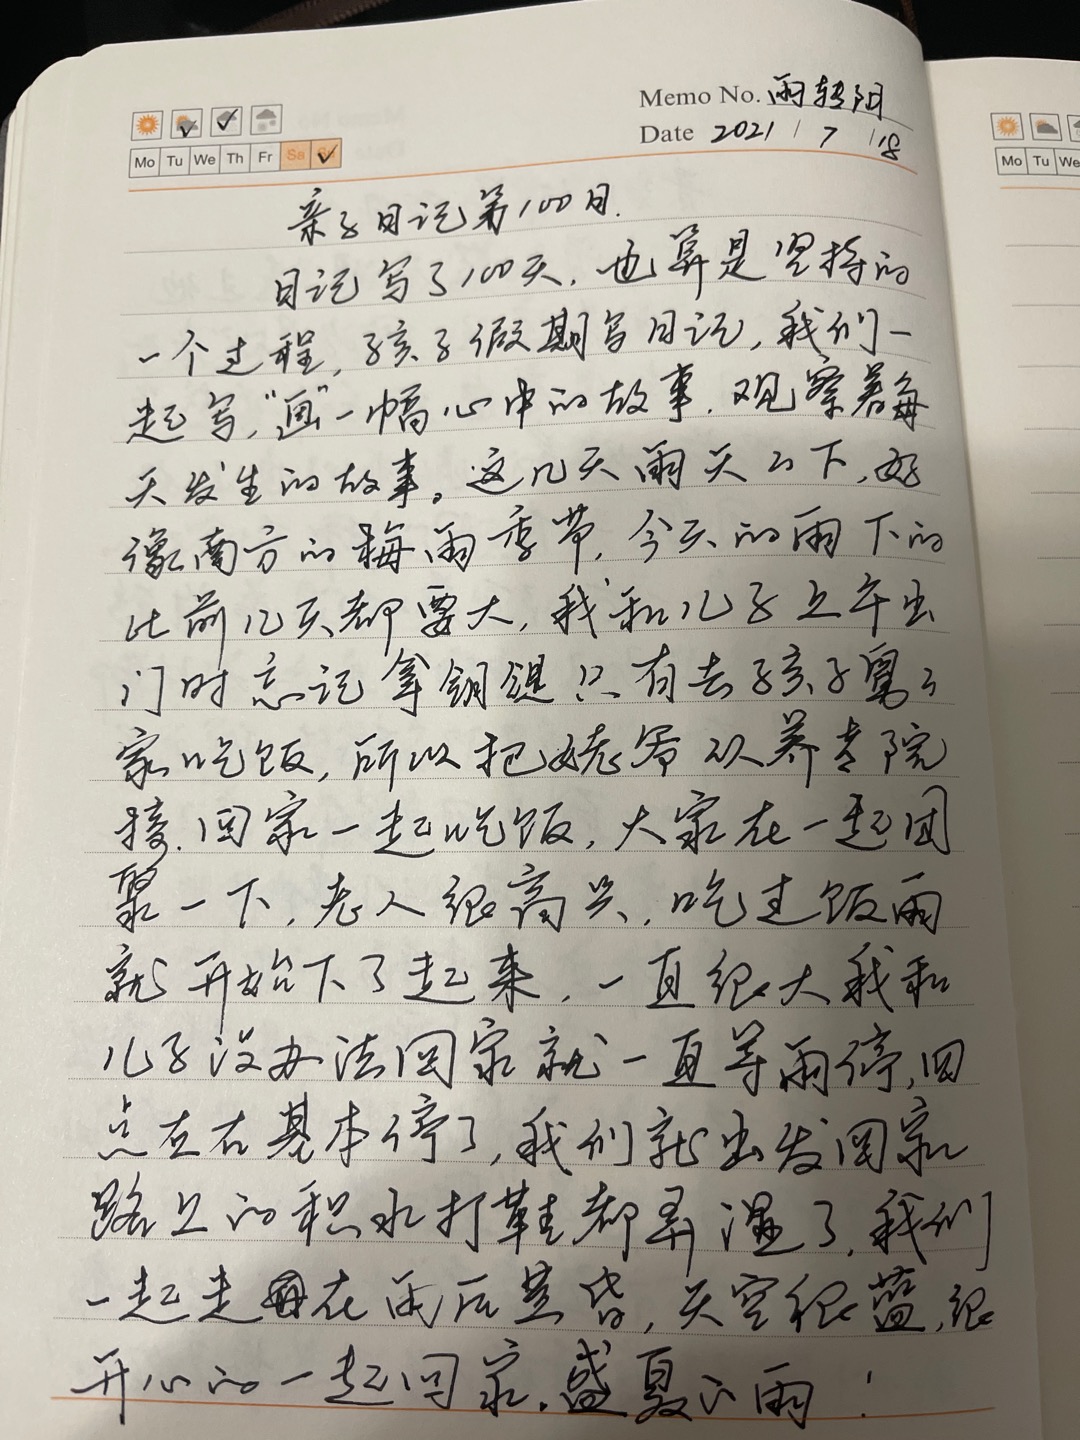 Memo No. 雨转阳
Date 2021 / 7 / 18
Mo Tu We Th Fr Sa
Mo Tu We
亲子日记第100日.
日记写了100天，也算是坚持的
一个过程，孩子假期写日记，我们一
起写，“画”一幅心中的故事，观察着每
天发生的故事。这几天雨天天下，好
像南方的梅雨季节，今天的雨下的
比前几天都要大，我和儿子上午出
门时忘记拿钥匙只有去孩子
家吃饭，所以把姥爷从养老院
接回家一起吃饭，大家在一起团
聚一下，老人很高兴，吃过饭雨
就开始下了起来，一直很大我和
儿子没办法回家就一直等雨停，四
点左右基本停了，我们就出发回家
路上的积水打鞋都弄湿了，我们
一起走在雨后黄昏，天空很蓝，很
开心的一起回家。盛夏的雨！